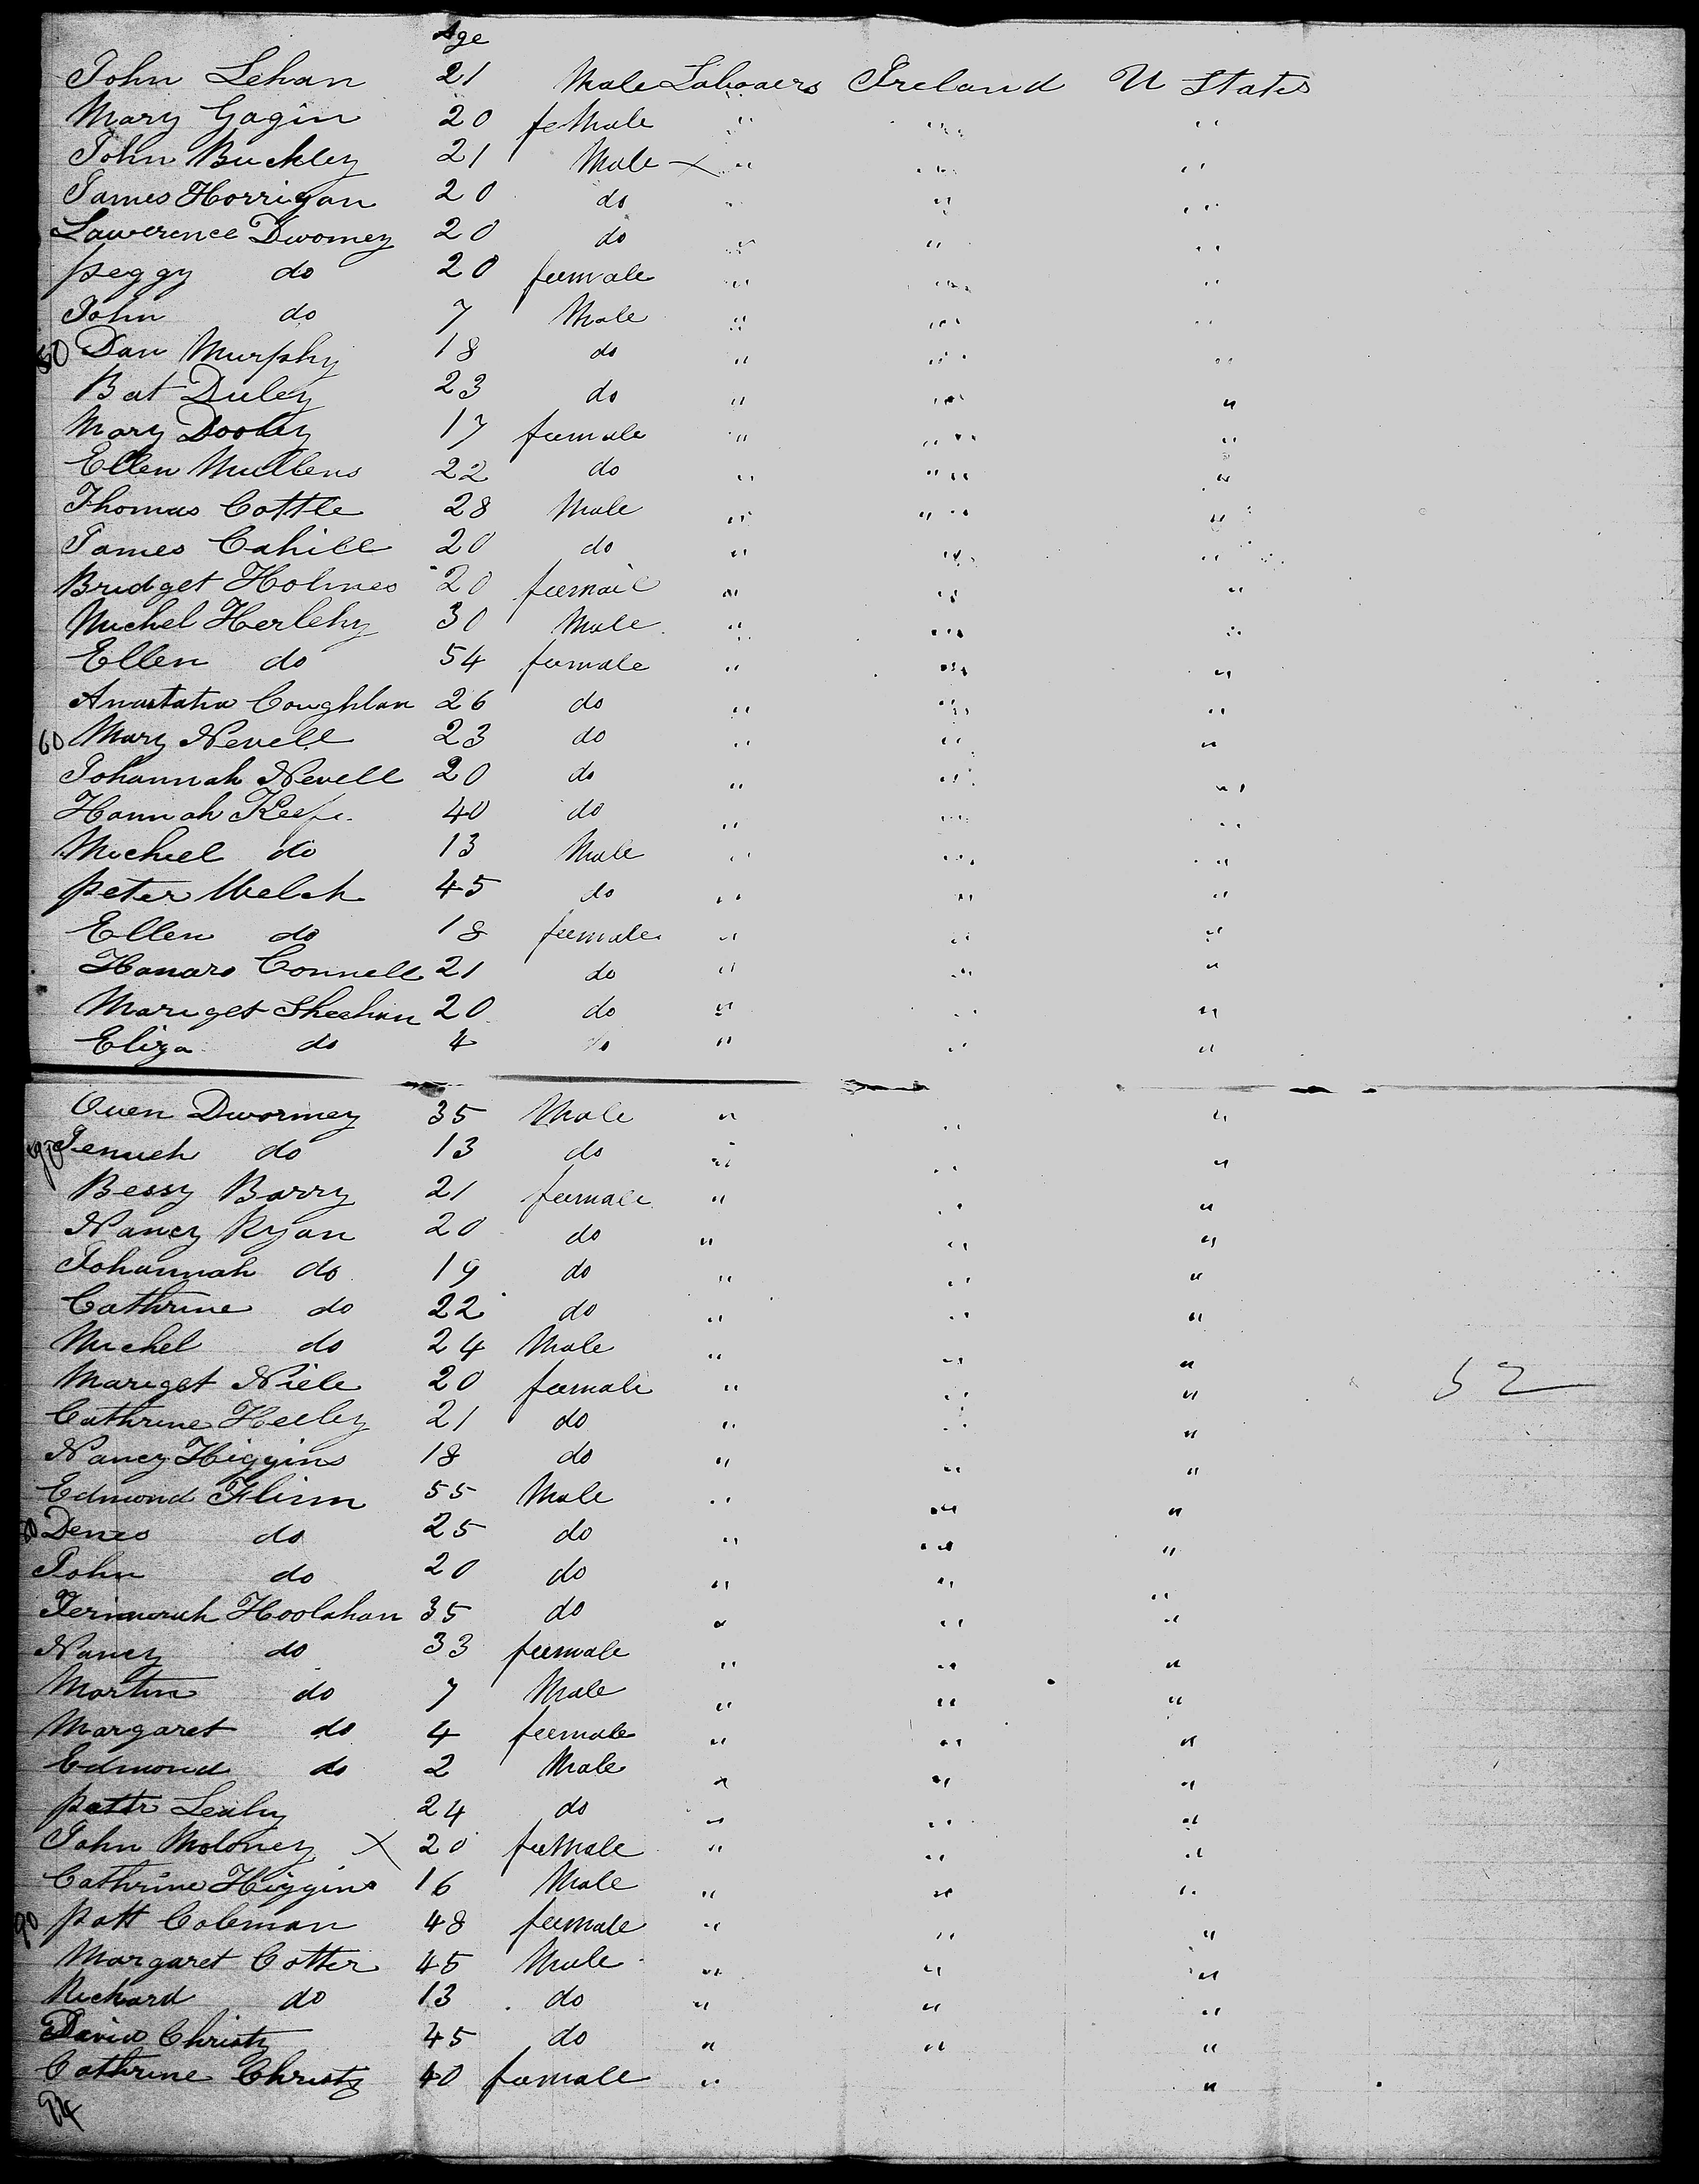 Age
John Lehan 21 Male Labouers Ireland U States
Mary Gagin 20 feMale " " "
John Buckley 21 Male × " " "
James Horrigan 20 do " " "
Lawerence Dwomey 20 do " " "
peggy do 20 feemale " " "
John do 7 Male " " "
50 Dan Murphy 18 do " " "
Bat Duley 23 do " " "
Mary Dooley 17 feemale " " "
Ellen Mullens 22 do " " "
Thomas Cottle 28 Male " " "
James Cahill 20 do " " "
Bridget Holmes 20 feemail " " "
Michel Herlehy 30 Male " " "
Ellen do 54 feemale " " "
Anastatia Coughlan 26 do " " "
60 Mary Nevell 23 do " " "
Johannah Nevell 20 do " " "
Hannah Keefe 40 do " " "
Micheel do 13 Male " " "
peter Welch 45 do " " "
Ellen do 18 feemale " " "
Hanaro Connell 21 do " " "
Mariget Sheehan 20 do " " "
Eliza do 4 do " " "
Owen Dwormey 35 Male " " "
70 do 13 do " " "
Bessy Barry 21 feemale " " "
Nancy Ryan 20 do " " "
Johannah do 19 do " " "
Cathrine do 22 do " " "
Michel do 24 Male " " "
Mariget Niele 20 feemale " " " 52
Cathrine Heeley 21 do " " "
Nancy Higgins 18 do " " "
Edmond Flinn 55 Male " " "
80 Denes do 25 do " " "
John do 20 do " " "
Hoolahan 35 do " " "
Nancy do 33 feemale " " "
Martin do 7 Male " " "
Margaret do 4 feemale " " "
Edmond do 2 Male " " "
patt Leahy 24 do " " "
John Moloney × 20 feeMale " " "
Cathrine Higgins 16 Male " " "
90 patt Coleman 48 feemale " " "
Margaret Cotter 45 Male " " "
Richard do 13 do " " "
David Christy 45 do " " "
Cathrine Christy 40 feemale " "
94